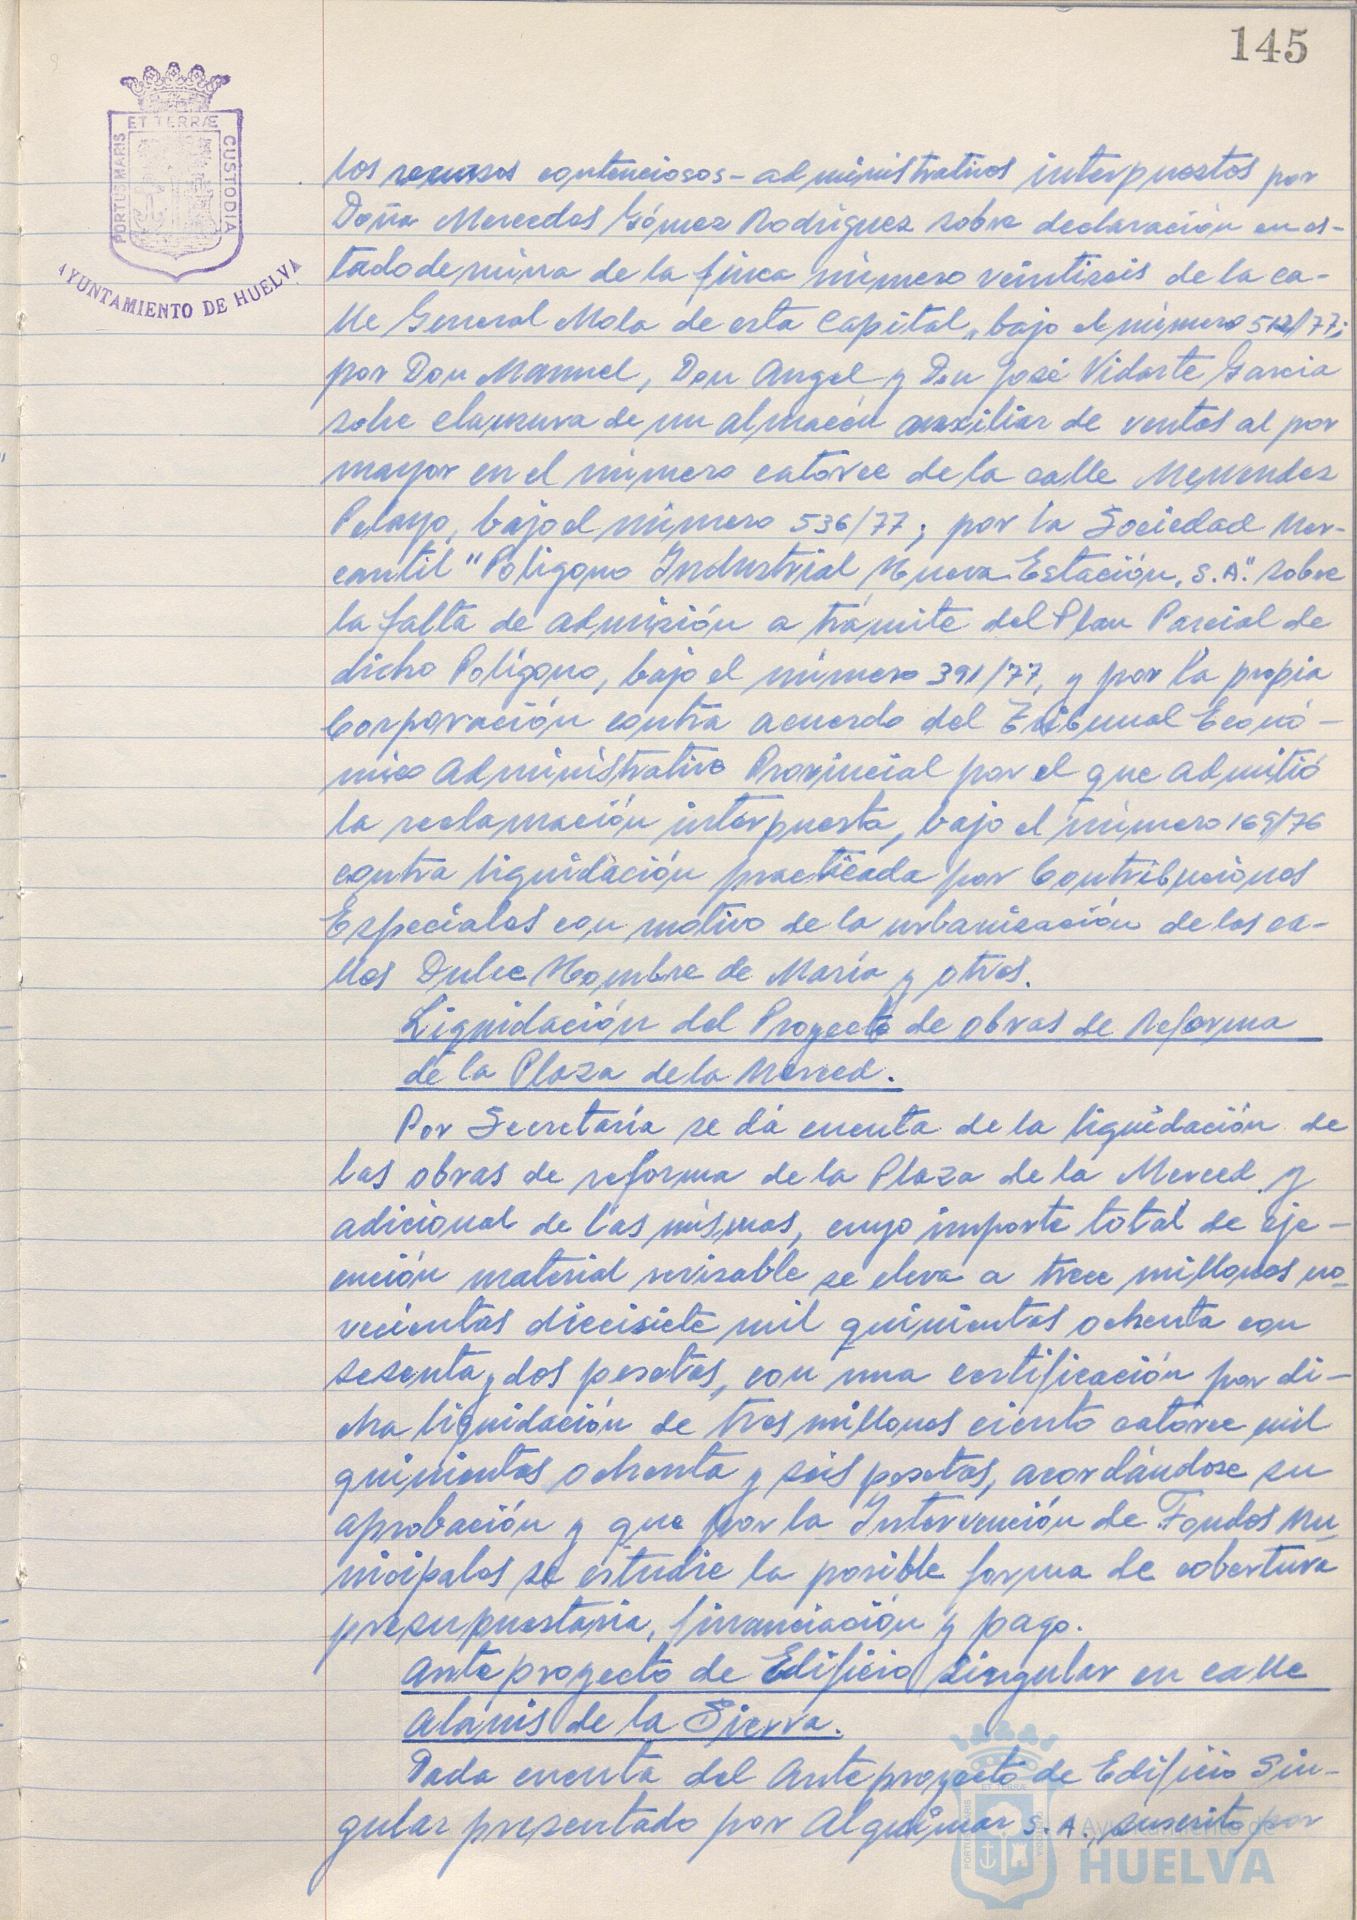 145
PORTUS MARIS ET TERRÆ CUSTODIA
AYUNTAMIENTO DE HUELVA
los recursos contenciosos-administrativos interpuestos por
Doña Mercedes Gómez Rodríguez sobre declaración en es-
tado de ruina de la finca número veintiseis de la ca-
lle General Mola de esta Capital, bajo el número 512/77;
por Don Manuel, Don Angel y Don José Vidarte Garcia
sobre clausura de un almacén auxiliar de ventas al por
mayor en el número catorce de la calle Menendez
Pelayo, bajo el número 536/77; por la Sociedad Mer-
cantil "Poligono Industrial Nueva Estación, S.A." sobre
la falta de admisión a trámite del Plan Parcial de
dicho Polígono, bajo el número 391/77, y por la propia
Corporación contra acuerdo del Tribunal Econó-
mico Administrativo Provincial por el que admitió
la reclamación interpuesta, bajo el número 169/76
contra liquidación practicada por Contribuciones
Especiales con motivo de la urbanización de las ca-
lles Dulce Nombre de María y otras.
Liquidación del Proyecto de obras de Reforma
de la Plaza de la Merced.
Por Secretaría se dá cuenta de la liquidación de
las obras de reforma de la Plaza de la Merced y
adicional de las mismas, cuyo importe total de eje-
cución material revisable se eleva a trece millones no-
vecientas diecisiete mil quinientas ochenta con
sesenta y dos pesetas, con una certificación por di-
cha liquidación de tres millones ciento catorce mil
quinientas ochenta y seis pesetas, acordándose su
aprobación y que por la Intervención de Fondos Mu-
nicipales se estudie la posible forma de cobertura
presupuestaria, financiación y pago.
Anteproyecto de Edificio Singular en calle
Alanis de la Sierra.
Dada cuenta del Anteproyecto de Edificio Sin-
gular presentado por Alquimar S.A., suscrito por
PORTUS MARIS ET TERRÆ CUSTODIA
Ayuntamiento de
HUELVA